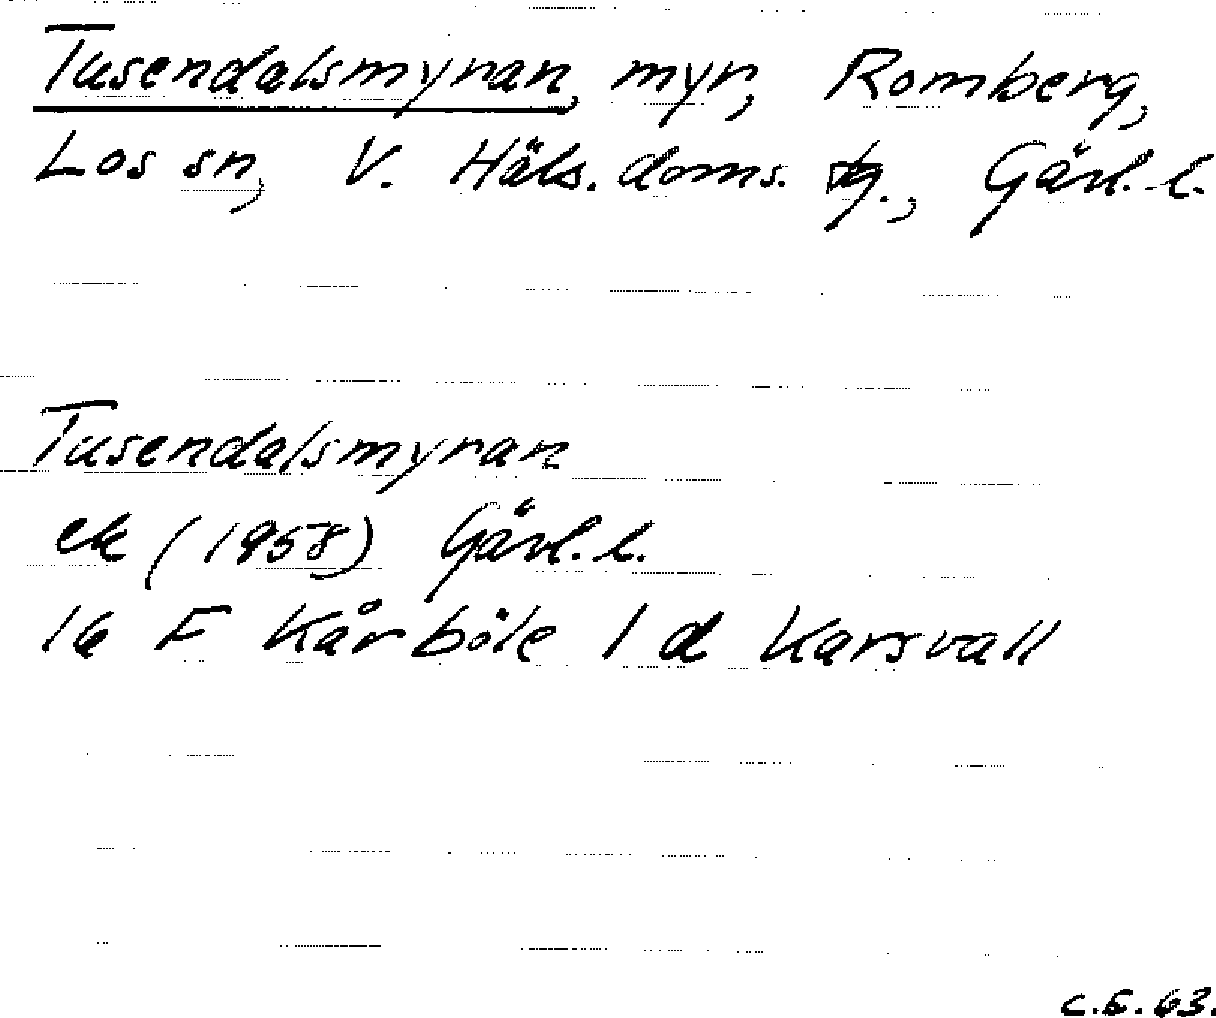 Tusendalsmyran, myr, Romberg,
Los sn, V. Häls. doms. tg., Gävl. l.
Tusendalsmyran
ek (1958) Gävl. l.
16 F Kårböle 1 d Karsvall
C.E. 63.